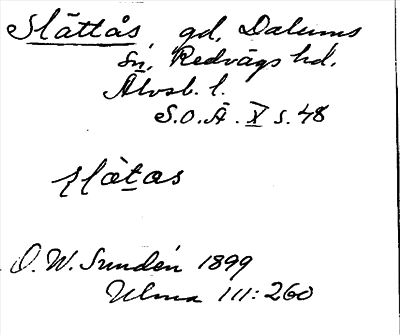 Slättås gd, Dalums
sn, Redvägs hd.
Älvsb. l.
S.O.Ä. X s. 48
slàtas
D. W. Sundén 1899
Ulma 111:260